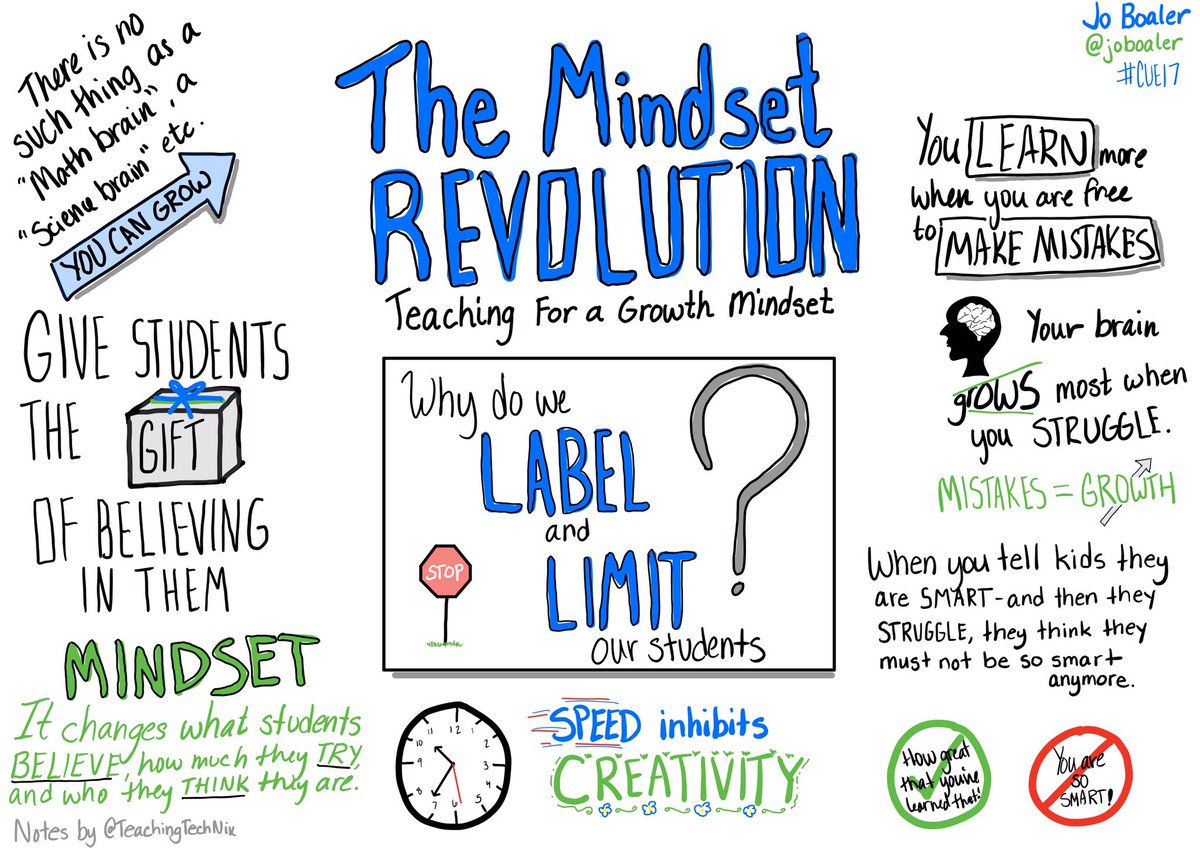 There is no
such thing as a
"Math brain", a
"Science brain" etc.
YOU CAN GROW
GIVE STUDENTS
THE GIFT
OF BELIEVING
IN THEM
MINDSET
It changes what students
BELIEVE, how much they TRY,
and who they THINK they are.
Notes by @TeachingTechNik
The Mindset
REVOLUTION
Teaching For a Growth Mindset
Why do we
LABEL
and
LIMIT
our students
?
STOP
12
1
2
3
4
5
6
7
8
9
10
11
SPEED inhibits
CREATIVITY
Jo Boaler
@joboaler
#CUE17
You LEARN more
when you are free
to MAKE MISTAKES
Your brain
grows most when
you STRUGGLE.
MISTAKES = GROWTH
When you tell kids they
are SMART - and then they
STRUGGLE, they think they
must not be so smart
anymore.
How great
that you've
learned that!
You are
SO
SMART!